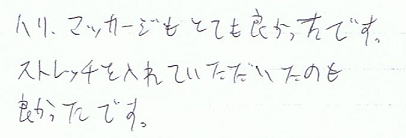 ハリ、マッサージもとても良かったです。
ストレッチを入れていただいたのも
良かったです。